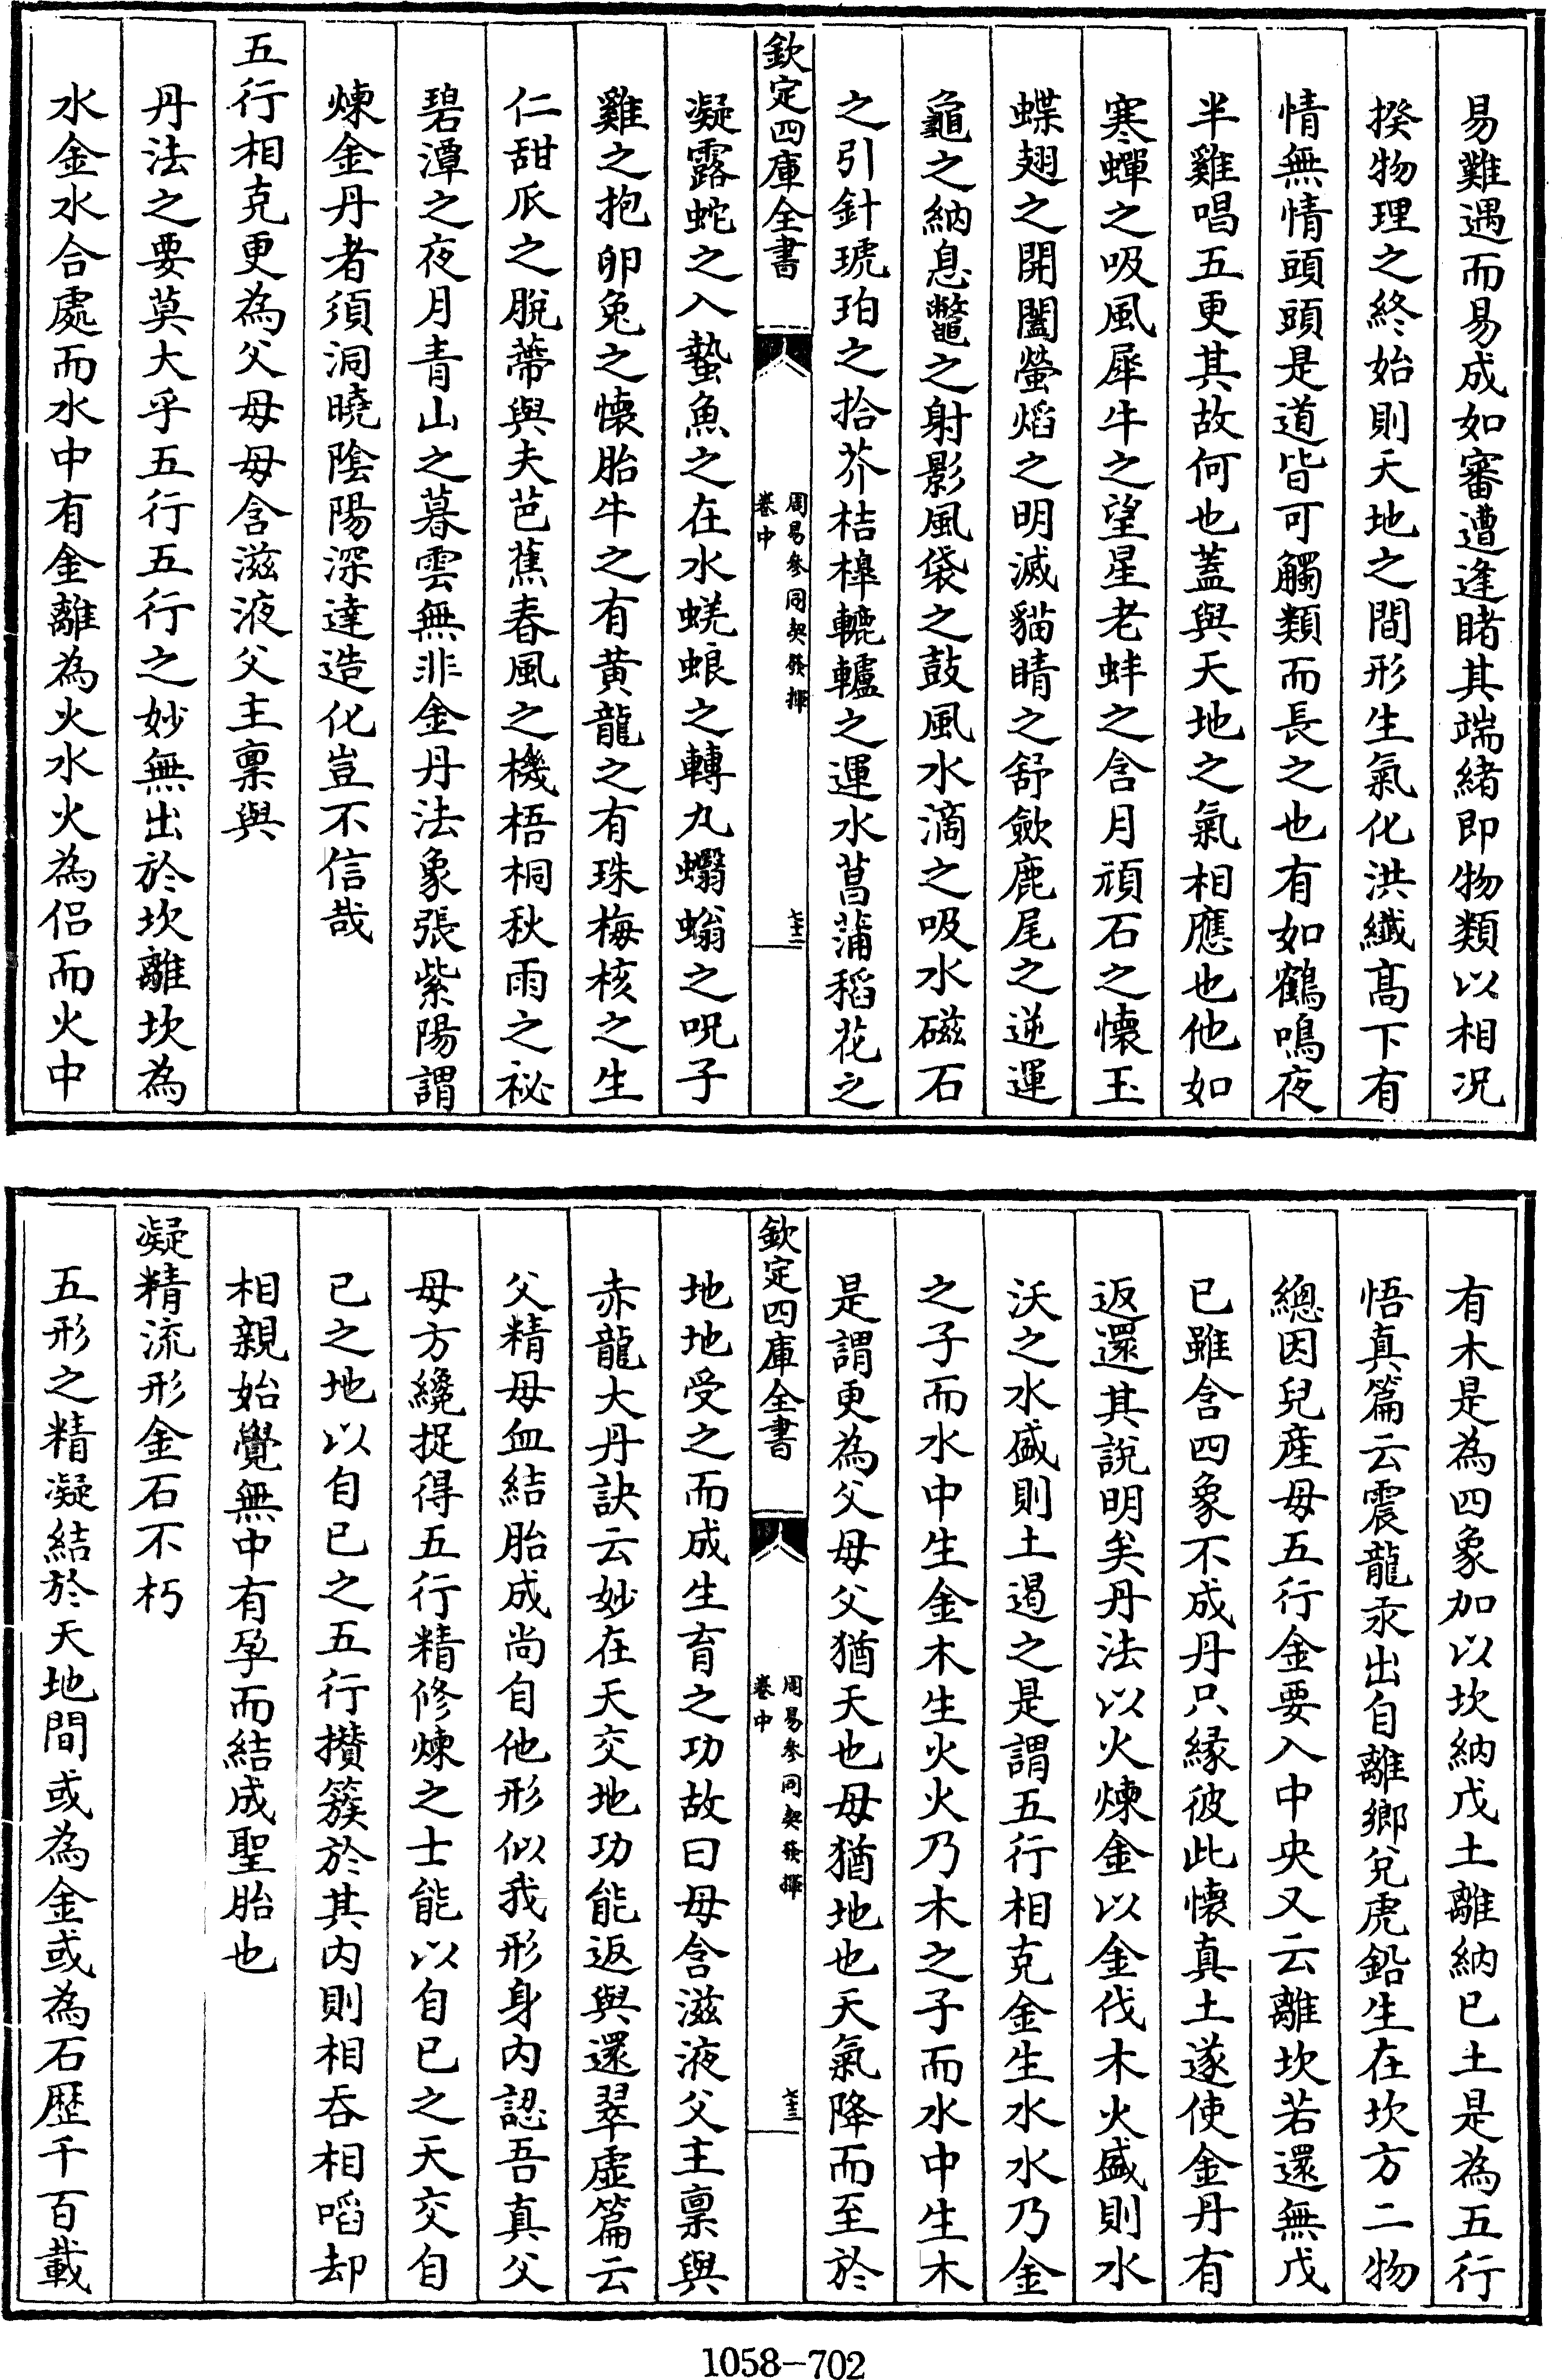 易難遇而易成如審遭逢睹其端緒即物類以相况
揆物理之終始則天地之間形生氣化洪纖髙下有
情無情頭頭是道皆可觸類而長之也有如鶴鳴夜
半雞唱五更其故何也蓋與天地之氣相應也他如
寒蟬之吸風犀牛之望星老蚌之含月頑石之懷玉
蝶翅之開闔螢熖之明滅貓睛之舒歛鹿尾之逆運
龜之納息鼈之射影風袋之鼓風水滴之吸水磁石
之引針琥珀之拾芥桔槹轆轤之運水菖蒲稻花之
欽定四庫全書
周易參同契發揮
卷中
七十二
凝露蛇之入蟄魚之在水蜣蜋之轉丸蠮螉之呪子
雞之抱卵兔之懷胎牛之有黄龍之有珠梅核之生
仁甜瓜之脫蔕與夫芭蕉春風之機梧桐秋雨之祕
碧潭之夜月青山之暮雲無非金丹法象張紫陽謂
煉金丹者須洞曉隂陽深達造化豈不信哉
五行相克更為父母母含滋液父主稟與
丹法之要莫大乎五行五行之妙無出於坎離坎為
水金水合處而水中有金離為火水火為侣而火中
有木是為四象加以坎納戊土離納已土是為五行
悟真篇云震龍汞出自離鄉兌虎鉛生在坎方二物
總因兒産母五行金要入中央又云離坎若還無戊
已雖含四象不成丹只縁彼此懷真土遂使金丹有
返還其說明矣丹法以火煉金以金伐木火盛則水
沃之水盛則土遏之是謂五行相克金生水水乃金
之子而水中生金木生火火乃木之子而水中生木
是謂更為父母父猶天也母猶地也天氣降而至於
欽定四庫全書
周易參同契發揮
卷中
七十三
地地受之而成生育之功故曰母含滋液父主稟與
赤龍大丹訣云妙在天交地功能返與還翠虚篇云
父精母血結胎成尚自他形似我形身内認吾真父
母方纔捉得五行精修煉之士能以自已之天交自
已之地以自已之五行攅簇於其内則相吞相啗却
相親始覺無中有孕而結成聖胎也
凝精流形金石不朽
五形之精凝結於天地間或為金或為石歴千百載
1058-702